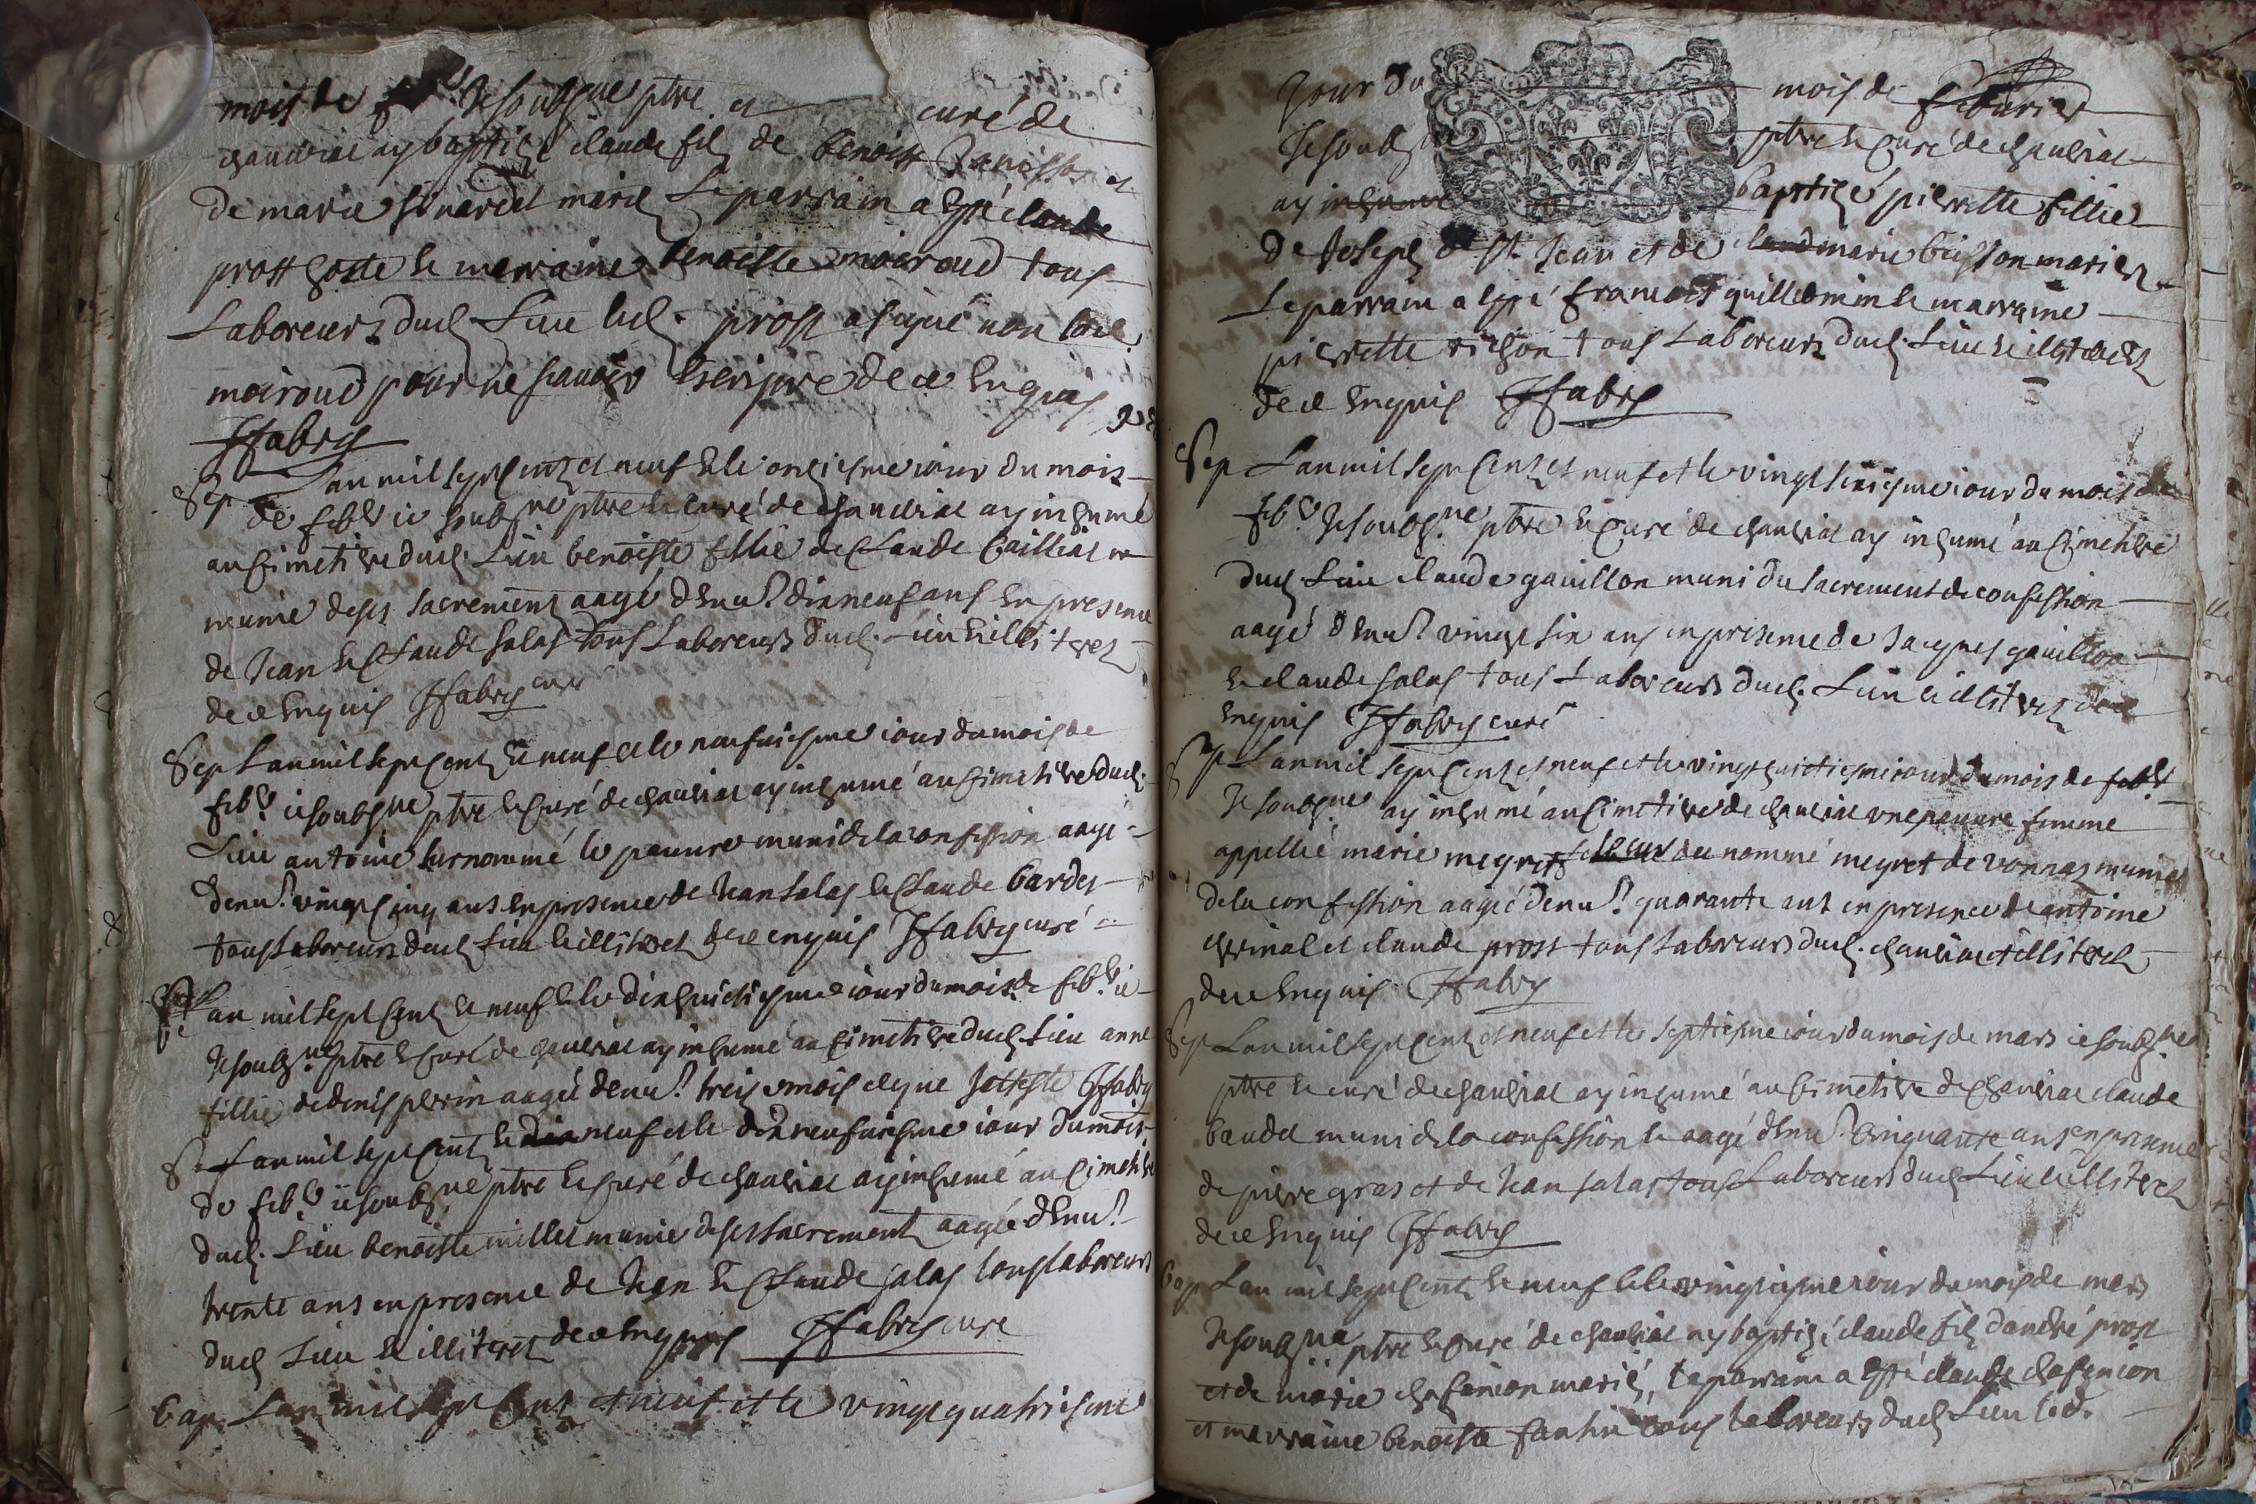 mois de Je soubsne ptre et curé de
chauviat ay baptizé claude filz de benoist
de marie mariez Le parrain a esté claude
prost la marraine benoiste moiroud tous
Laboreurs dud. Lieu led. prost a signé non lad.
moiroud pour ne scauoir Escripre de ce Enquis
Ffabry
Sep Lan mil sept Centz et neuf et le onziesme iour du mois
de feb. ie soubsne ptre et curé de chauviat ay inhumé
au Cimetiere dud. Lieu benoiste fillie de Claude
munie de ses sacrementz aagé denu. dix neuf ans En presence
de Jean et Claude salas tous Laboreurs dud. Lieu et illiterez
de ce Enquis Ffabry curé
Sep Lan mil sept Centz et neuf et le neufuiesme iour du mois de
feb. ie soubsne ptre et curé de chauviat ay inhumé au Cimetiere dud.
Lieu antoine surnommé le pauure muni de la confession aagé
denu. vingt Cinq ans en presence de Jean salas et Claude
tous Laboreurs dud. Lieu et illiterez de ce enquis Ffabry curé
Lan mil sept Centz et neuf et le dix huictiesme iour du mois de feb. ie
Je soubsne ptre et curé de chauviat ay inhumé au Cimetiere dud. Lieu anne
fillie de denis perrin aagée denu. trois mois ce que Jatteste Ffabry
S. Lan mil sept Centz et neuf et le dix neufuiesme iour du mois
de feb. ie soubsne ptre et curé de chauviat ay inhumé au Cimetiere
dud. Lieu benoiste millet munie de ses sacrementz aagée denu.
trente ans en presence de Jean et Claude salas tous laboreurs
dud. Lieu et illiterez de ce Enquis Ffabry curé
bap Lan mil sept Centz et neuf et le vingt quatriesme
Jour du mois de feburier
Je soubsne ptre et curé de chauviat
ay baptizé pierrette fillie
de Joseph de St. Jean et de marie buisson mariez
Le parrain a esté francois guillemin et marraine
pierrette tous Laboreurs dud. Lieu et illiterez
de ce Enquis Ffabry
Sep Lan mil sept Centz et neuf et le vingt sixiesme iour du mois de
feb. Je soubsne ptre et Curé de chauviat ay inhumé au Cimetiere
dud. Lieu claude gauillon muni du sacrement de confession
aagé denu. vingt six ans en presence de Jacques gauillon
et claude salas tous Laboreurs dud. Lieu et illiterez de ce
Enquis Ffabry curé
Sep Lan mil sept Centz et neuf et le vingt huictiesme iour du mois de feb.
Je soubsne ay inhumé au Cimetiere de chauviat vne pauure femme
appellié marie megret du nommé megret de vonnas munie
de la confession aagée denu. quarante ans en presence de antoine
et claude prost tous Laboreurs dud. chauviat et illiterez
de ce Enquis Ffabry
Sep Lan mil sept Centz et neuf et le septiesme iour du mois de mars ie soubsne
ptre et curé de chauviat ay inhumé au Cimetiere de chauviat claude
baudet muni de la confession et aagé denu. Cinquante ans en presence
de pierre gras et de Jean salas tous Laboreurs dud. Lieu et illiterez
de ce Enquis Ffabry
bap Lan mil sept Centz et neuf et le vingtiesme iour du mois de mars
Je soubsne ptre et Curé de chauviat ay baptizé claude filz dandré prost
et de marie chafanion mariés, le parrain a esté claude chafanion
et marraine benoiste tous laboreurs dud. Lieu led.